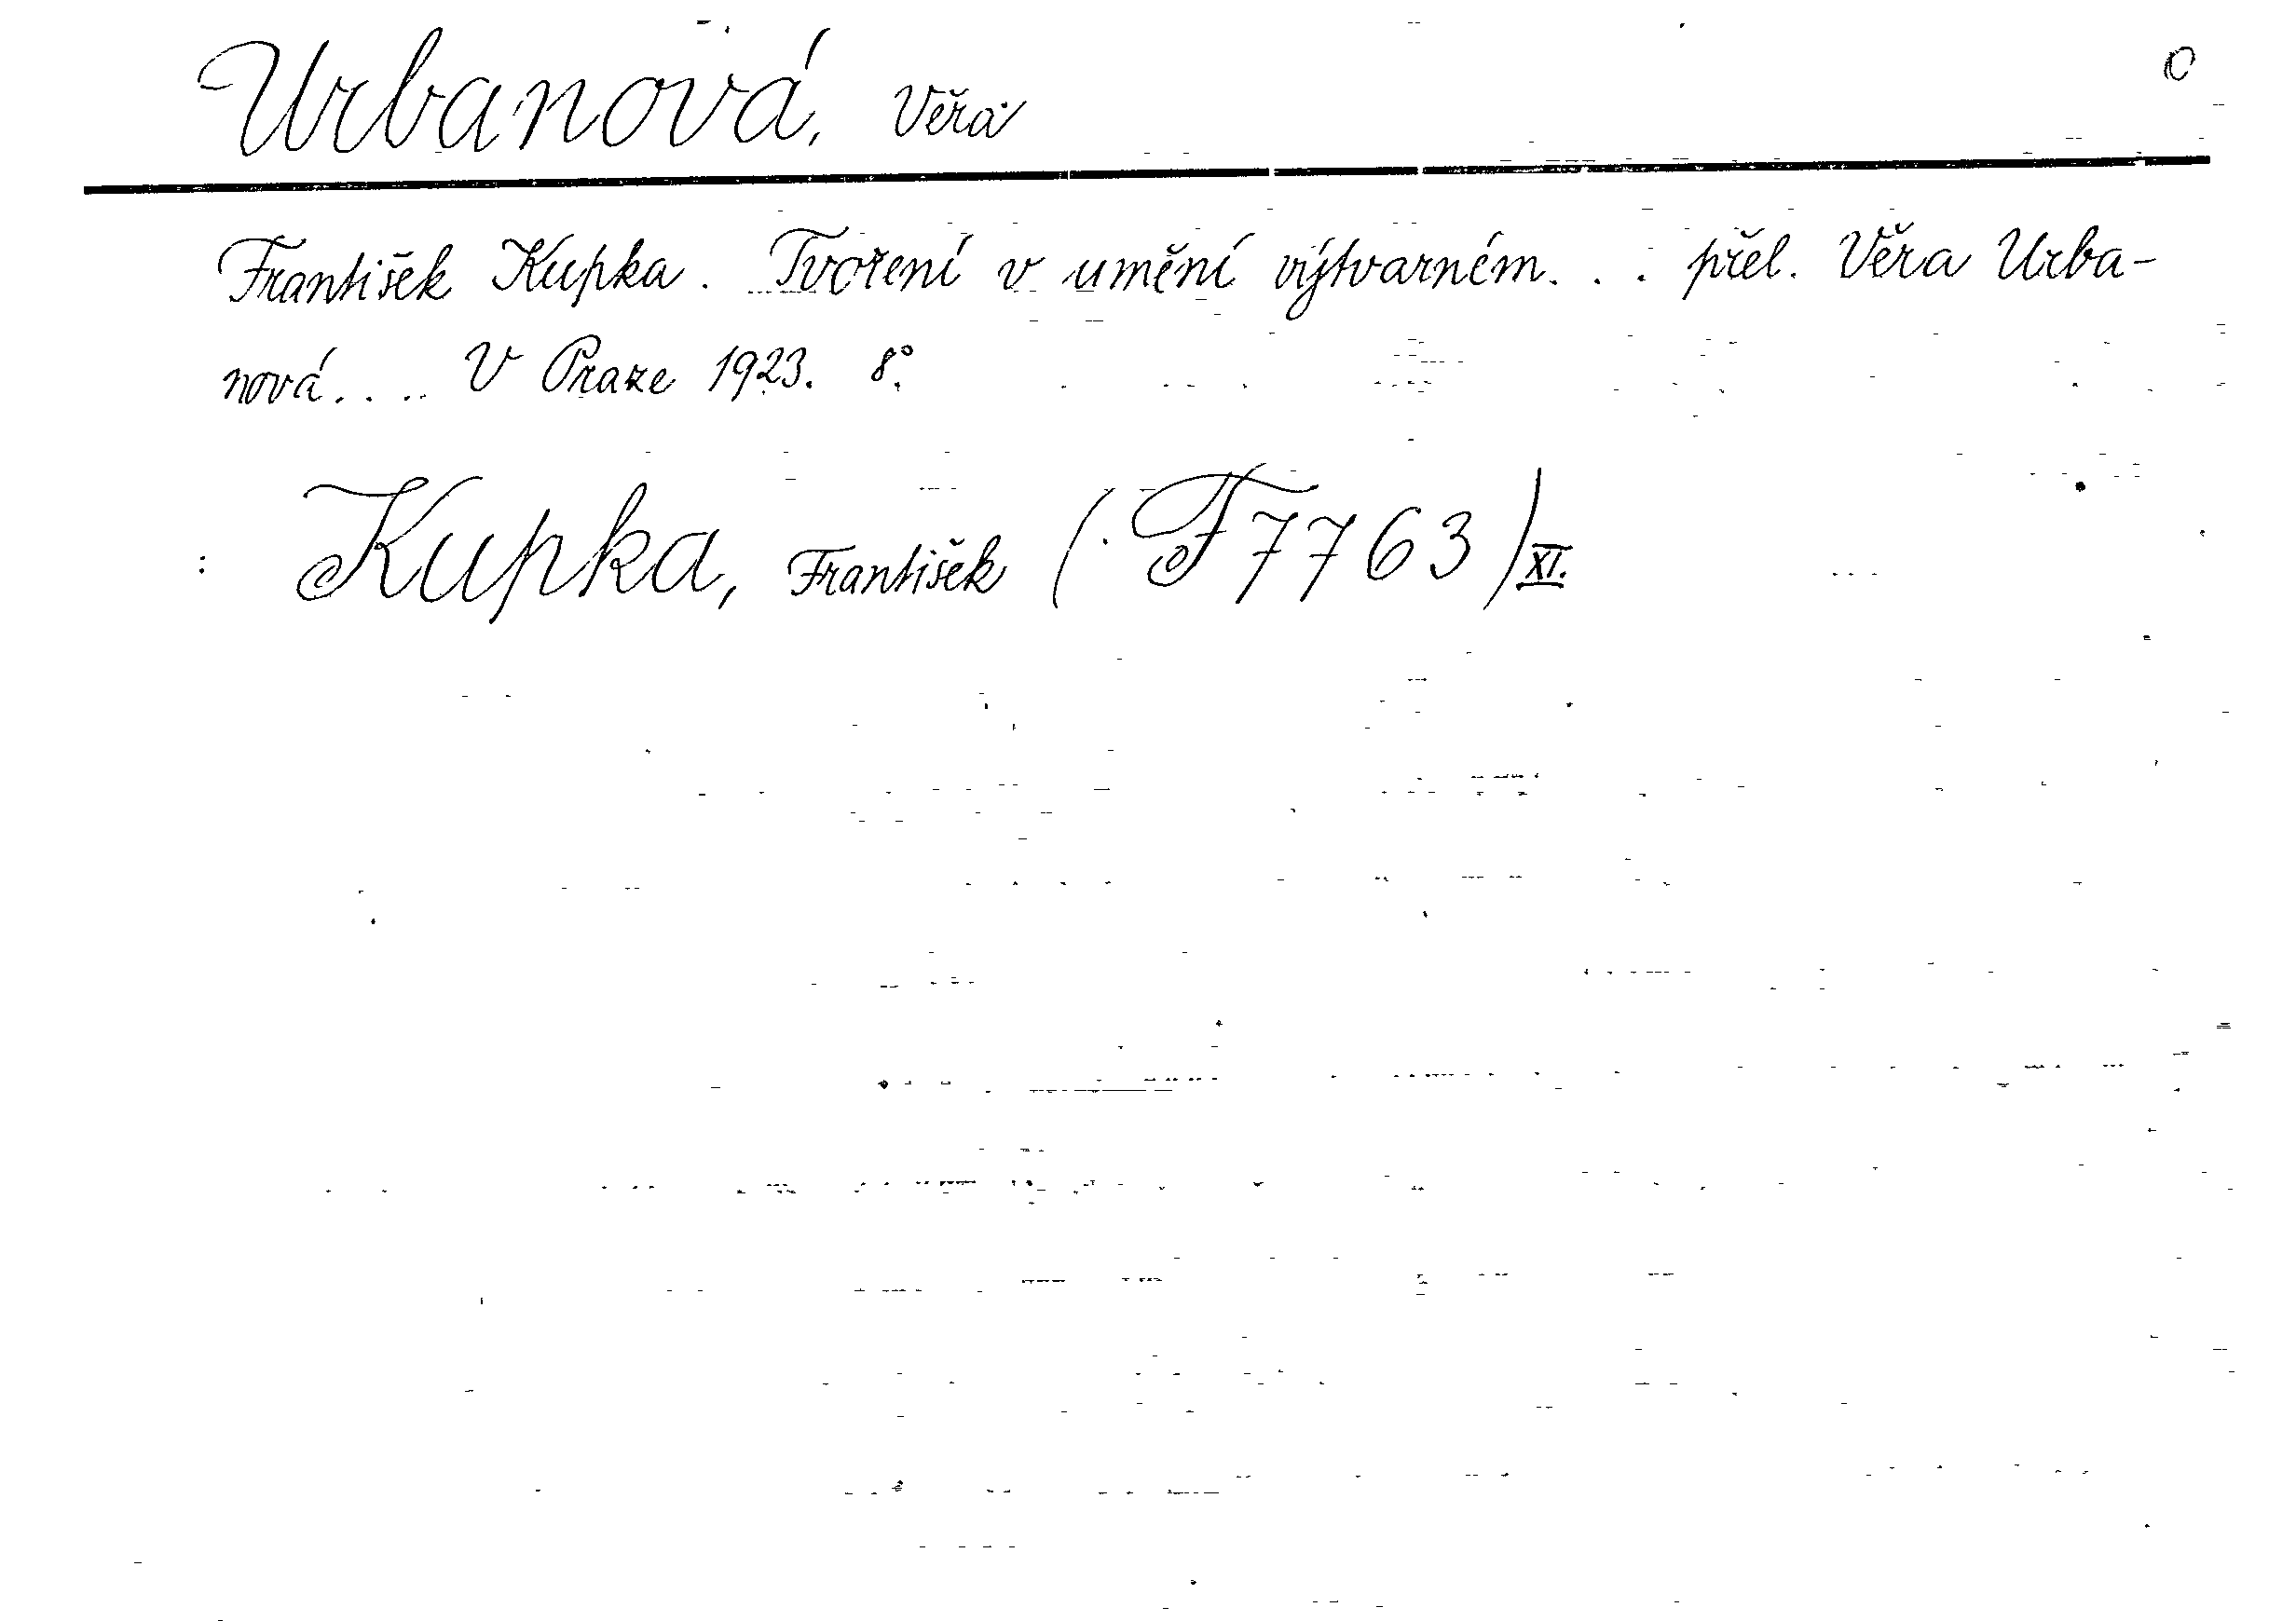 Urbanová, Věra
František Kupka. Tvoření v umění výtvarném. . . přel. Věra Urba-
nová. . . . V Praze 1923. 8°.
: Kupka, František (F 7763) XI.